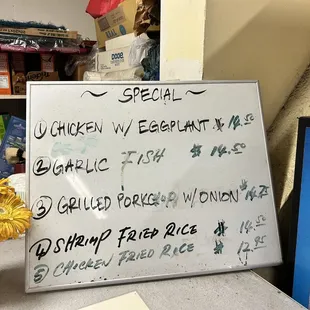 ~ SPECIAL ~
① CHICKEN W/ EGGPLANT $ 14.50
② GARLIC FISH $ 14.50
③ GRILLED PORKCHOP W/ONION $ 14.75
4) SHRIMP FRIED RICE $ 14.50
⑤ CHICKEN FRIED RICE $ 12.95